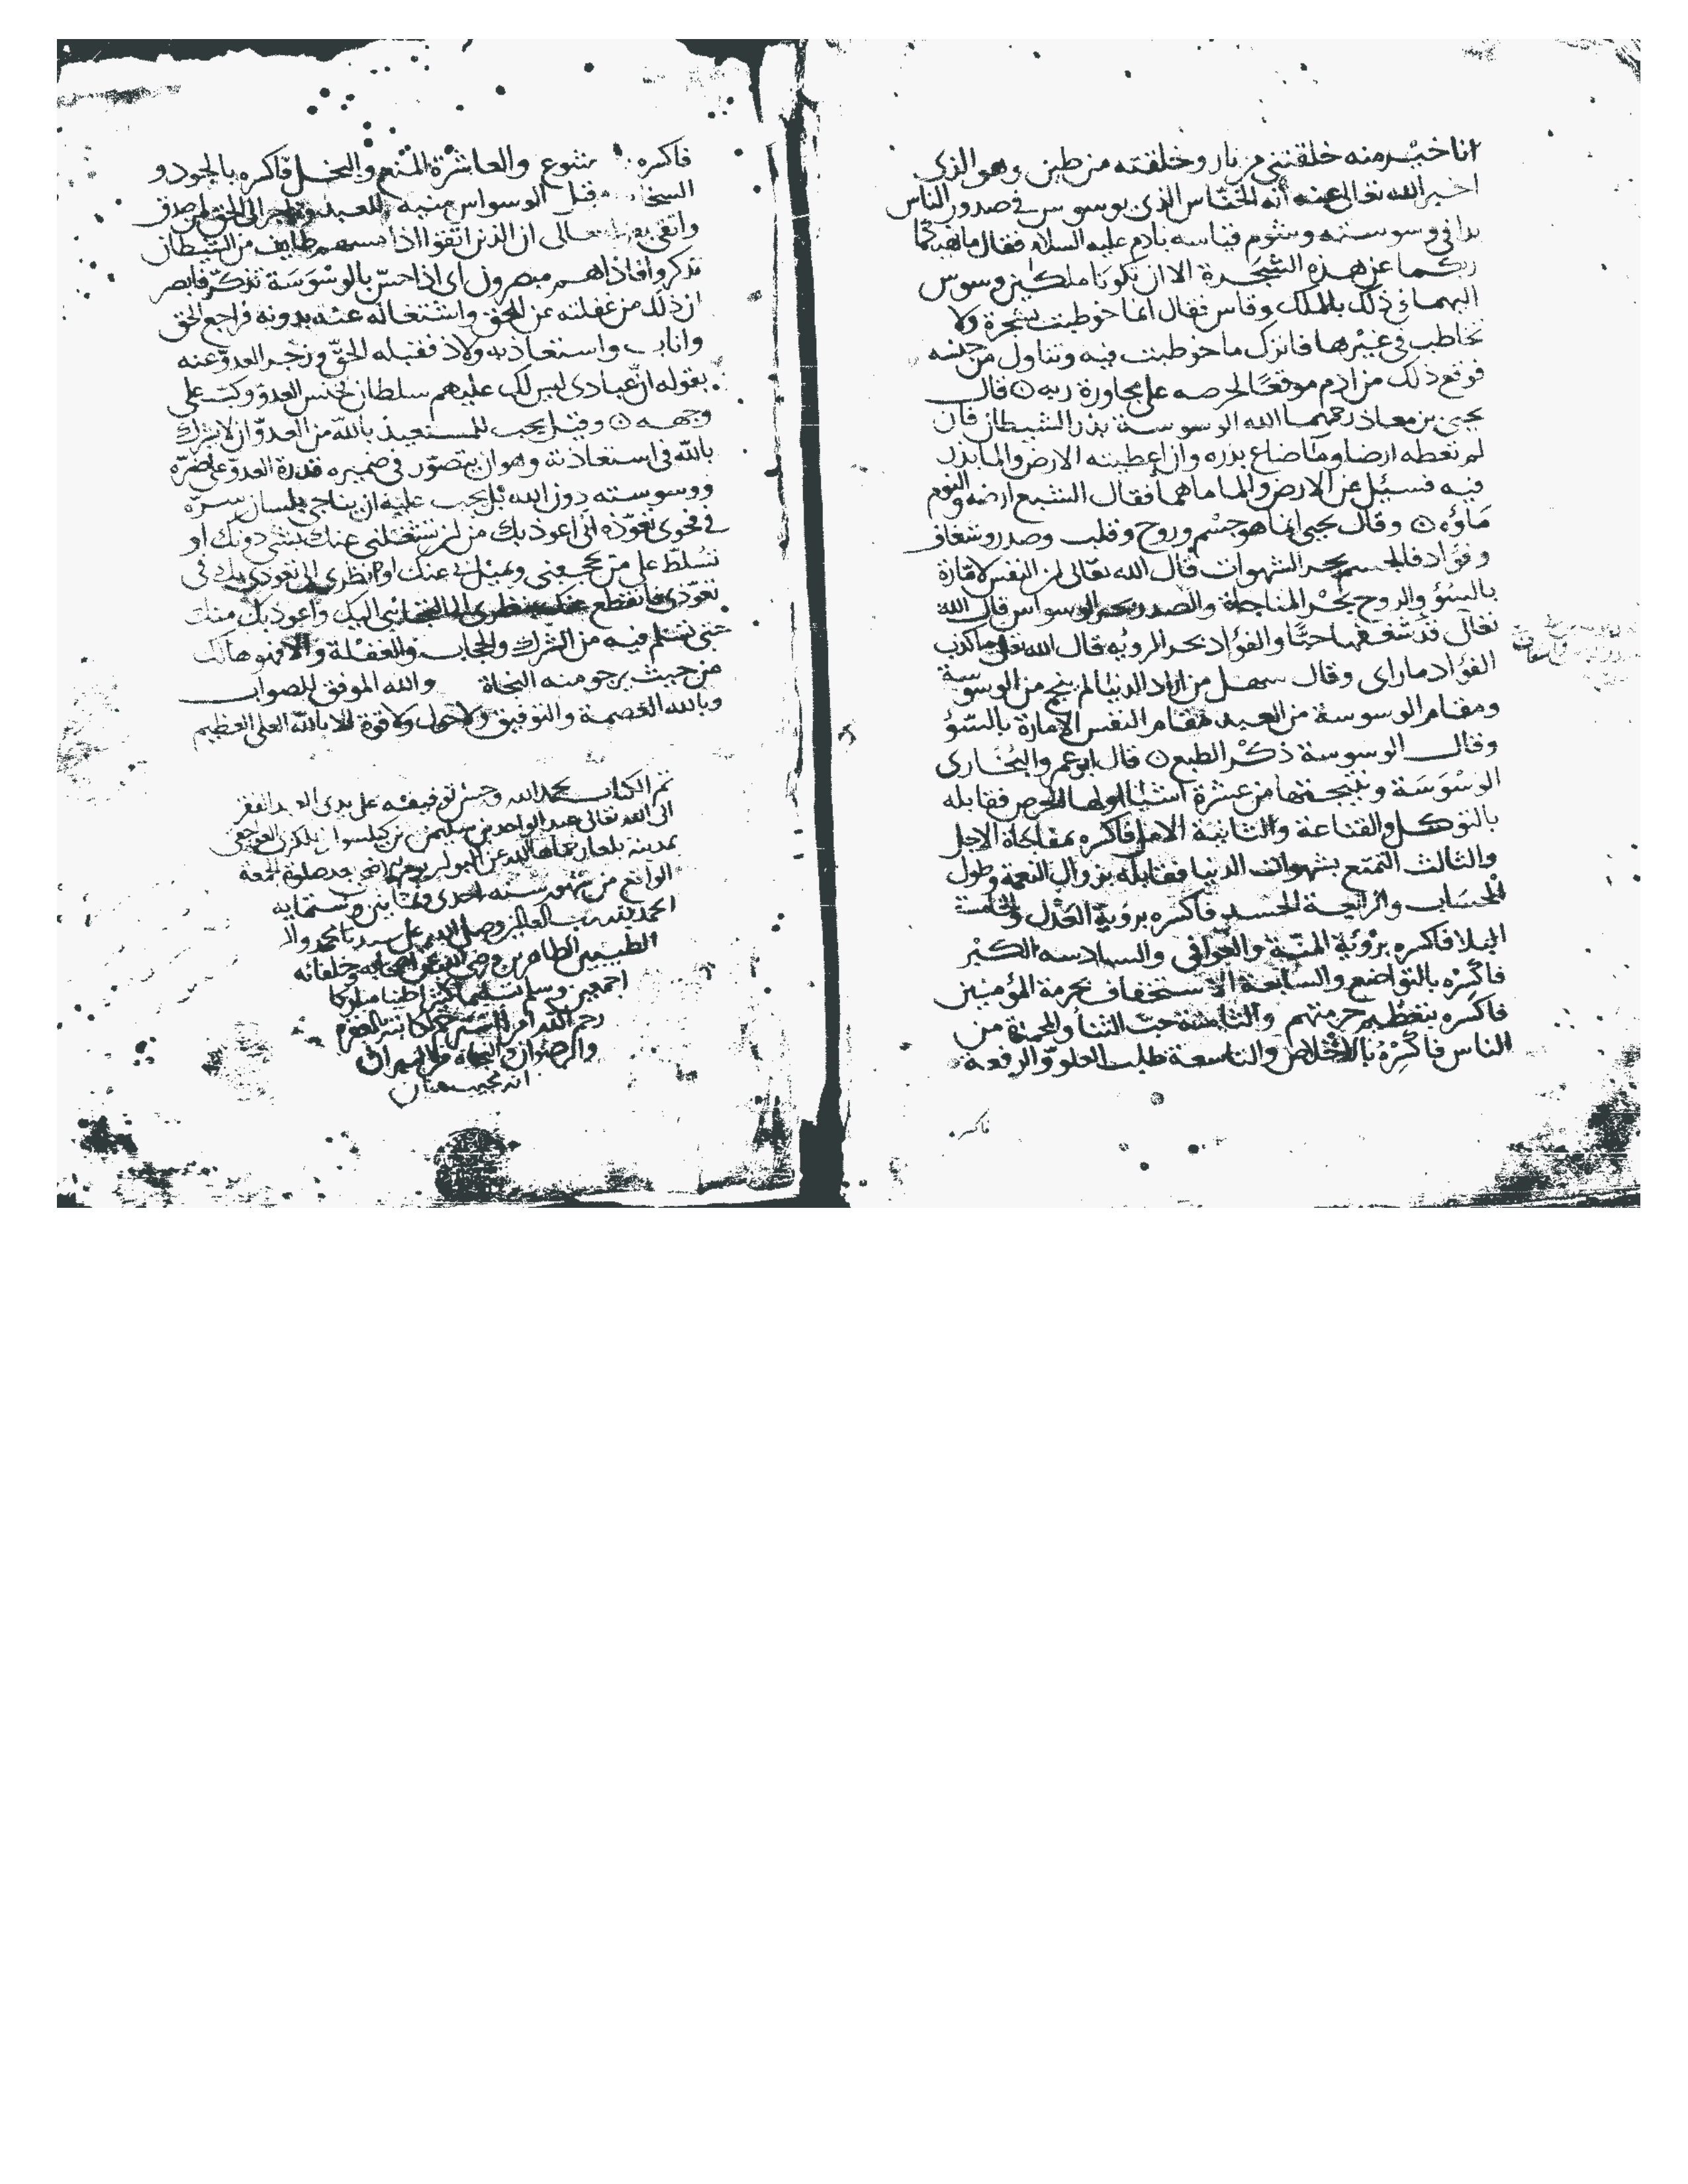 انا خير منه خلقتني من نار وخلقته من طين وهو الذي
اخبر الله تعالى عنه أنه الخناس الذي يوسوس في صدور الناس
بدا في وسوسته وشوم قياسه بادم عليه السلام فقال ما نهيكما
ربكما عن هذه الشجرة الا ان تكونا ملكين وسوس
اليهما في ذلك بالملك وقاس فقال انما خوطبت بشجرة ولا
تخاطب في غيرها فاترك ما خوطبت فيه وتناول من جنسه
فوقع ذلك من ادم موقعًا لحرصه على مجاورة ربه ۞ قال
يحيى بن معاذ رحمهما الله الوسوسة بذر الشيطان فان
لم تعطه ارضا وما ضاع بذره وان اعطيته الارض والما بذر
فيه فسئل عن الارض والما ما هما فقال الشبع ارضه والنوم
ماؤه ۞ وقال يحيى انما هو جسم وروح وقلب وصدر وشغاف
وفؤاد فالجسم بحر الشهوات قال الله تعالى ان النفس لامارة
بالسوؤ والروح بحر المناجاة والصدر بحر الوسواس قال الله
تعالى قد شغفها حبًا والفؤاد بحر الرؤيه قال الله تعالى ما كذب
الفؤاد ما راى وقال سهل من اراد الدنيا لم ينج من الوسوسة
ومقام الوسوسة من العبد مقام النفس الامارة بالسوؤ
وقال الوسوسة ذكر الطبع ۞ قال ابو عمرو البخاري
الوسوسة ونتيجتها من عشرة اشيا اولها الحرص فقابله
بالتوكل والقناعة والثانية الامل فاكسره بمفاجاة الاجل
والثالث التمتع بشهوات الدنيا فقابله بزوال النعمة وطول
الحساب والرابعة الحسد فاكسره برؤية العدل والخامسة
البلا فاكسره برؤية المنة والعوافي والسادسه الكبر
فاكسره بالتواضع والسابعة الاستخفاف بحرمة المؤمنين
فاكسره بتعظيم حرمتهم والثامنة حب الثنا والمحمدة من
الناس فاكسره بالاخلاص والتاسعة طلب العلو والرفعة
فاكسره
فاكسره والعاشرة المنع والبخل فاكسره بالجود و
السخا قبل الوسواس منبه للعبد الى الحق لمن صدق
واتقى تعالى ان الذين اتقوا اذا مسهم طايف من الشيطان
تذكروا فاذا هم مبصرون اي اذا حس بالوسوسة تذكر فابصر
ان ذلك من غفلته عن الحق واشتغاله عنه بدونه فراجع الحق
واناب واستعاذ به ولاذ فقبله الحق وزجر العدو عنه
بقوله ان عبادي ليس لك عليهم سلطان فخنس العدو وكبت على
وجهه ۞ وقيل يجب للمستعيذ بالله من العدو ان لا يشرك
بالله في استعاذته وهو ان يتصور في ضميره قدرة العدو على ضره
ووسوسته دون الله بل يجب عليه ان يناجي بلسان سره
في فحوى تعوذه اني اعوذ بك من ان تشغلني عنك بشي دونك او
تسلط علي من يحجبني ويميل بي عنك او نظري الى تعوذي بك في
تعوذي فانقطع اليك واعوذ بك منك
حتى تسلم فيه من الشرك والحجاب والغفلة والا فهو هالك
من حيث يرجو منه النجاة والله الموفق للصواب
وبالله العصمة والتوفيق ولا حول ولا قوة الا بالله العلي العظيم
تم الكتاب بحمد الله وحسن توفيقه على يدي العبد الفقير
الى الله تعالى عبد الواحد بن سليمن بن
بمدينة بلغار بعد صلوة الجمعة
الواقع من شهور سنه احدى وثمانين وستمايه
الحمد لله رب العالمين وصلى الله على سيدنا محمد واله
الطيبين الطاهرين ورضي الله عن اصحابه وخلفائه
اجمعين وسلم تسليما كثيرا طيبا مباركا
رحم الله امرأ
والرضوان والنجاة من النيران
انه مجيب منان